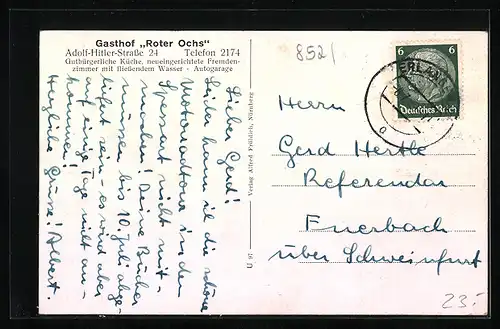 Gasthof „Roter Ochs“
Adolf-Hitler-Straße 24 Telefon 2174
Gutbürgerliche Küche, neueingerichtete Fremden-
zimmer mit fließendem Wasser - Autogarage
Lieber Gerd!
Leider kann ich die schöne
Motorradtour in den
Spessart nicht mit-
machen! Deine Bücher
müssen bis 10. Juli abge-
liefert sein - es wird aber
auf einige Tage nicht an-
kommen!
Herzliche Grüsse! Albert.
U 97 Verlag Alfred Fröhlich, Nürnberg
852/
6 6
Deutsches Reich
Herrn
Gerd Hertle
Referendar
Euerbach
über Schweinfurt
23.-